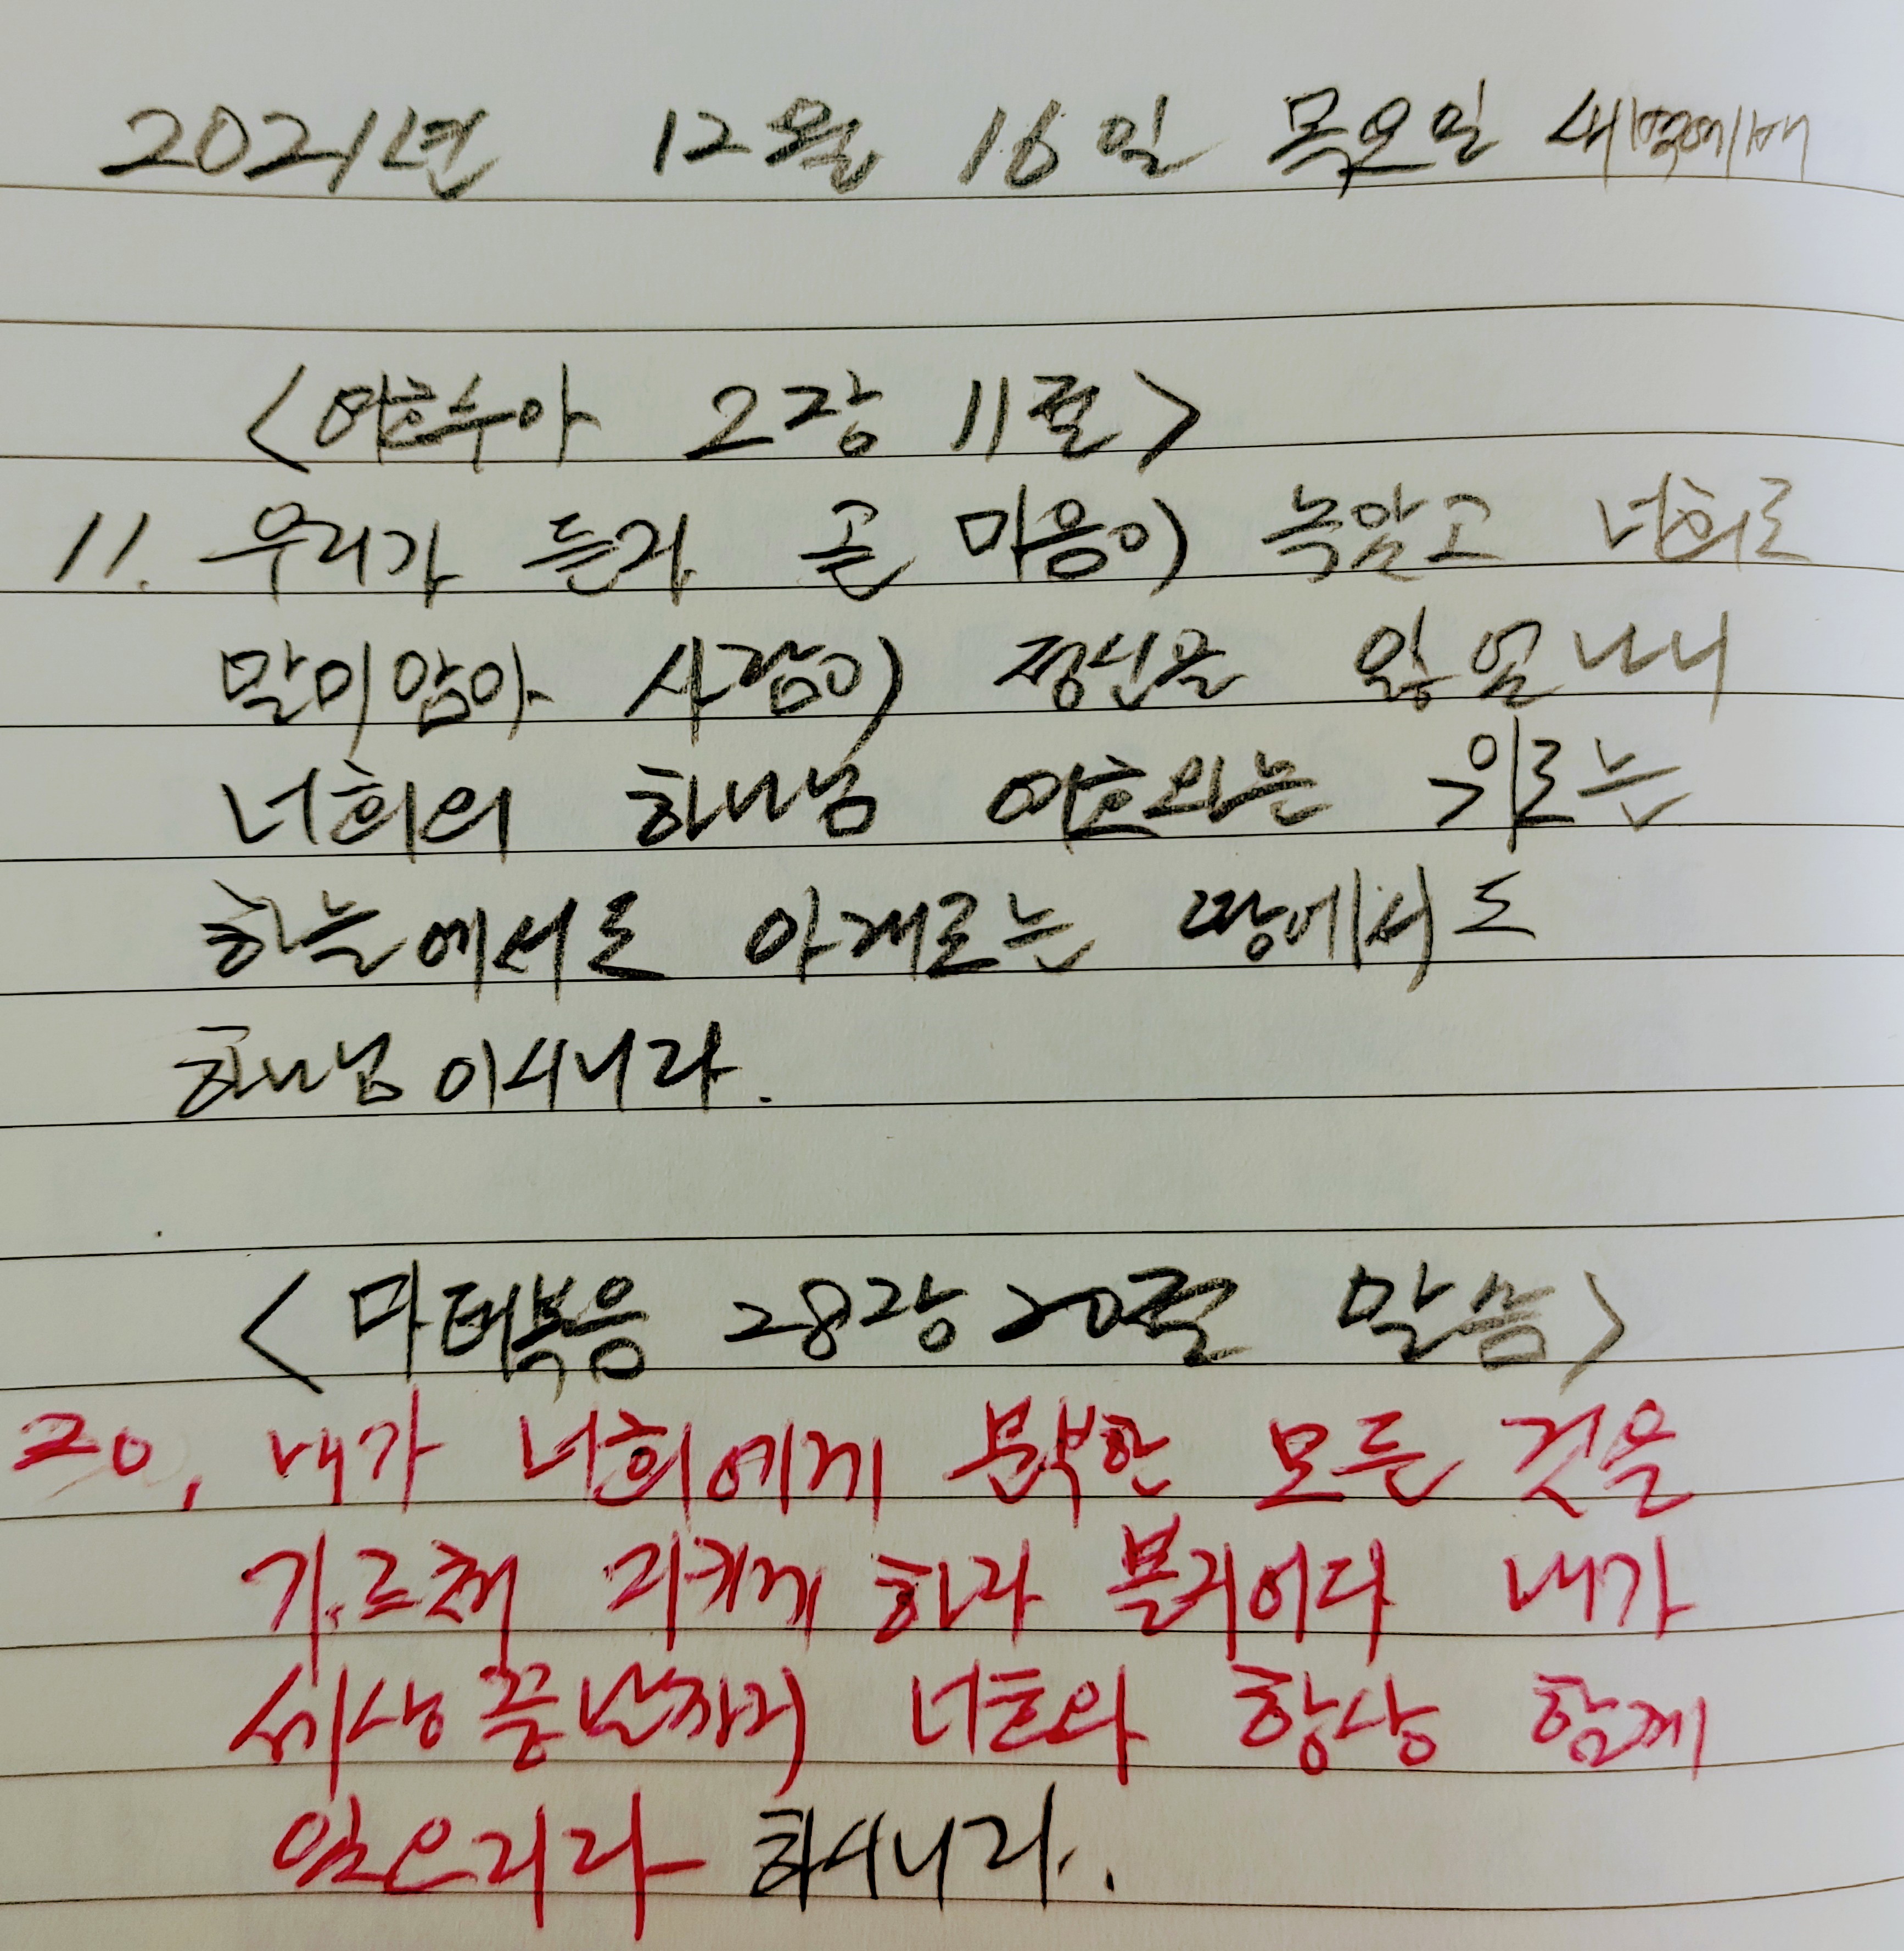 2021년 12월 16일 목요일 새벽예배
<여호수아 2장 11절>
11. 우리가 듣자 곧 마음이 녹았고 너희로
말미암아 사람이 정신을 잃었나니
너희의 하나님 여호와는 위로는
하늘에서도 아래로는 땅에서도
하나님이시니라.
<마태복음 28장 20절 말씀>
20, 내가 너희에게 분부한 모든 것을
가르쳐 지키게 하라 볼지어다 내가
세상 끝날까지 너희와 항상 함께
있으리라 하시니라.